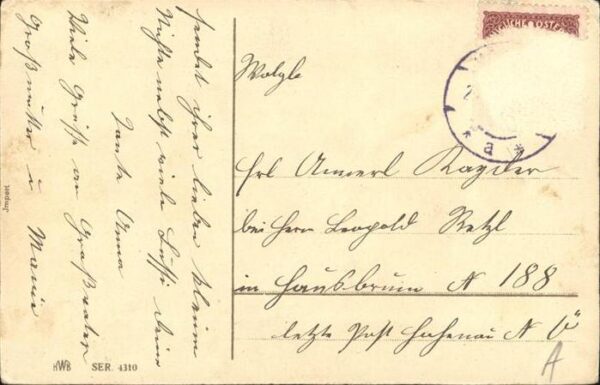 sendet ihrer lieben kleinen
Nichte nebst viele Bussi deine
Tante Anna
Viele Grüße an Großvater
Großmutter u Marie
Wolzle
Frl Annerl Kayder
bei Herrn Leopold Retzl
in Hausbrunn N 188
letzte Post Hohenau N Ö
A
a
Import
HWB SER. 4310